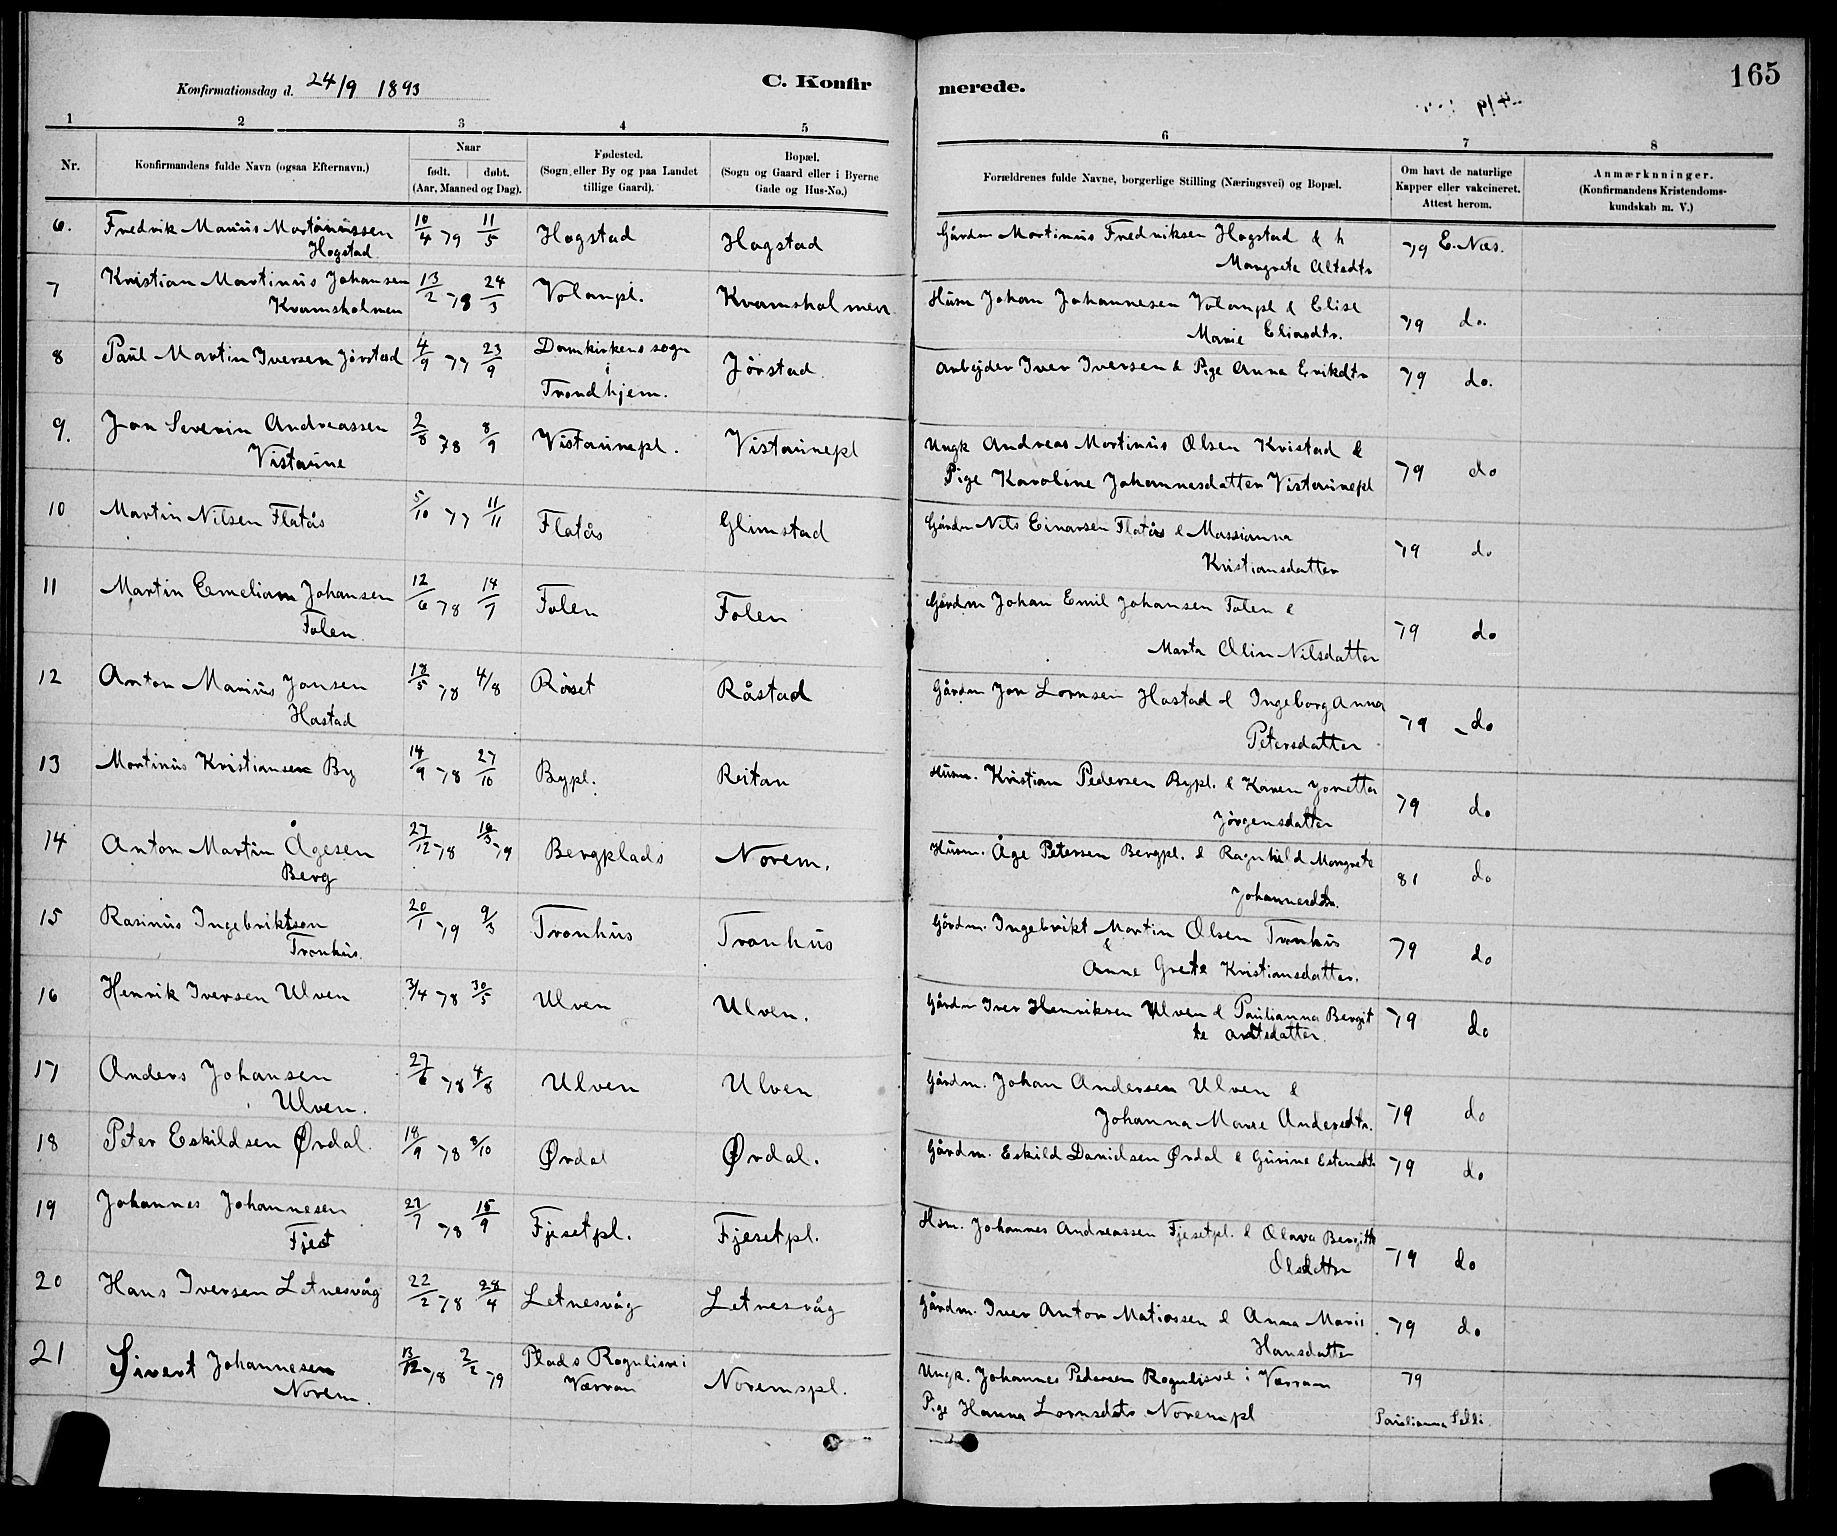 165
Konfirmationsdag d. 24/9 1893
C. Konfirmerede.
1 2 3 4 5 6 7 8
Nr.
Konfirmandens fulde Navn (ogsaa Efternavn.)
Naar
født. døbt.
(Aar, Maaned og Dag).
Fødested.
(Sogn eller By og paa Landet
tillige Gaard).
Bopæl.
(Sogn og Gaard eller i Byerne
Gade og Hus-No.)
Forældrenes fulde Navne, borgerlige Stilling (Næringsvei) og Bopæl.
Om havt de naturlige
Kopper eller vakcineret.
Attest herom.
Anmærkninger.
(Konfirmandens Kristendoms-
kundskab m. V.)
6. Fredrik Marius Martinussen 10/4 79 11/5 Hogstad Hogstad Gårdm Martinus Fredriksen Hogstad & h 79 E. Næs.
Hogstad Margrete Altsdtr
7 Kristian Martinus Johansen 13/2 78 24/3 Volanpl. Kvamsholmen Husm Johan Johannesen Volanpl & Elise 79 do.
Kvamsholmen Marie Eliasdtr.
8 Paul Martin Iversen Jörstad 4/9 77 23/9 Domkirkens sogn Jörstad Arbejder Iver Iversen & Pige Anna Eriksdtr 79 do.
i
Trondhjem.
9. Jon Severin Andreassen 2/8 78 8/9 Vistaunepl. Vistaunepl Ungk Andreas Martinus Olsen Kvistad &
Vistaune Pige Karoline Johannesdatter Vistaunepl 79 do
10 Martin Nilsen Flatås 5/10 77 11/11 Flatås Glimstad Gårdm Nils Einarsen Flatås & Massianna 79 do
Kristiansdatter
11 Martin Emelian Johansen 12/6 78 14/7 Folen Folen Gårdm Johan Emil Johansen Folen &
Folen Marta Olin Nilsdatter 79 do
12 Anton Marius Jonsen 18/5 78 4/8 Röset Råstad Gårdm Jon Lornsen Hastad & Ingeborg Anna
Hastad Petersdatter 79 do
13 Martinus Kristiansen By 14/9 78 27/10 Bypl. Reitan Husm. Kristian Pedersen Bypl. & Karen Jonetta
Jörgensdatter 79 do
14 Anton Martin Ågesen 27/12 78 79 Bergplads Norem. Husm. Åge Petersen Bergpl. & Ragnhild Margrete
Berg Johannesdtr. 81 do
15 Rasmus Ingebriktsen 20/1 79 9/3 Tronhus Tronhus Gårdm. Ingebrikt Martin Olsen Tronhus
Tronhus. & Anne Grete Kristiansdatter. 79 do
16 Henrik Iversen Ulven 3/4 78 30/5 Ulven Ulven. Gårdm Iver Henriksen Ulven & Paulianna Bergit
te Arntsdatter. 79 do
17 Anders Johansen 27/6 78 4/8 Ulven Ulven Gårdm. Johan Andersen Ulven &
Ulven. Johanna Marie Andersdtr. 79 do
18 Peter Eskildsen Ørdal. 18/9 78 8/10 Ørdal Ørdal. Gårdm. Eskild Danielsen Ørdal & Gurine Estensdtr 79 do
19 Johannes Johannesen 27/7 78 15/9 Fjesetpl. Fjesetpl. Hsm. Johannes Andreassen Fjesetpl. & Olava Bergitte
Fjeset Olsdatter 79 do
20 Hans Iversen Letnesvåg 22/2 78 28/4 Letnesvåg Letnesvåg Gårdm. Iver Anton Matiassen & Anna Marie
Hansdatter 79 do
21 Sivert Johannesen 13/12 78 2/2 79 Plads Rognlisve i Noremspl. Ungk. Johannes Pedersen Rognlisve i Værran 79
Norem. Værran Pige Hanna Lornsdtr Norempl Paulianna Selli